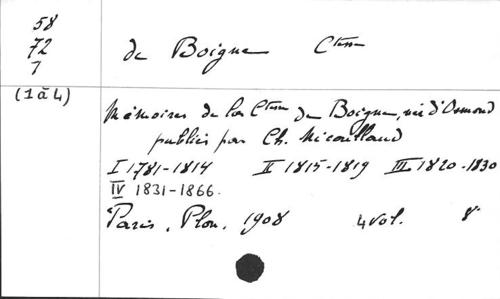 58
72
7
(1 à 4)
de Boigne Ctesse
Mémoires de la Ctesse de Boigne, née d'Osmond
publiés par Ch. Nicoullaud
I 1781-1814 II 1815-1819 III 1820-1830
IV 1831-1866.
Paris, Plon, 1908 4 vol. 8°